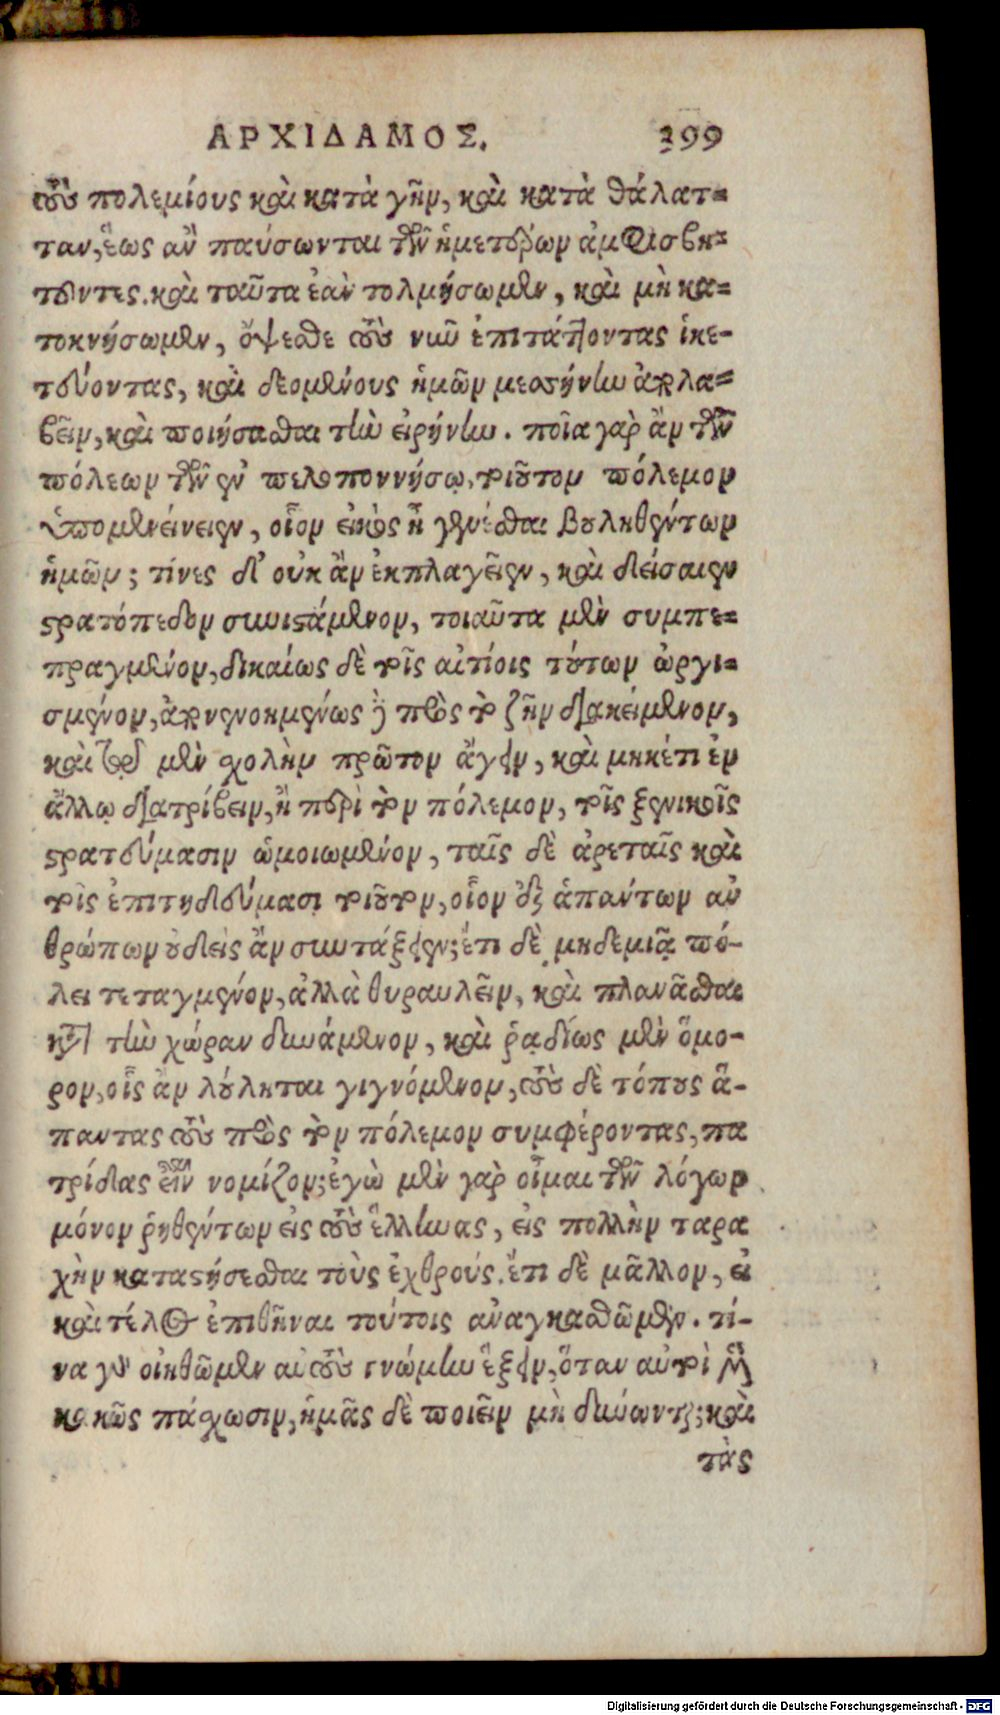 ΑΡΧΙΔΑΜΟΣ. 299
τοὺς πολεμίους καὶ κατὰ γῆν, καὶ κατὰ θάλατ-
ταν, ἕως ἂν παύσωνται τῶν ἡμετέρων ἀμφισβη-
τοῦντες. καὶ ταῦτα ἐὰν τολμήσωμεν, καὶ μὴ κα-
τοκνήσωμεν, ὄψεσθε τοὺς νῦν ἐπιτάττοντας ἱκε-
τεύοντας, καὶ δεομένους ἡμῶν μεσσήνην ἀπολα-
βεῖν, καὶ ποιήσασθαι τὴν εἰρήνην. ποῖα γὰρ ἂν τῶν
πόλεων τῶν ἐν πελοποννήσῳ, τοιοῦτον πόλεμον
ὑπομενείνειεν, οἷον εἰκὸς ἦ γενέσθαι βουληθέντων
ἡμῶν; τίνες δ' οὐκ ἂν ἐκπλαγεῖεν, καὶ δείσαιεν
στρατόπεδον συνιστάμενον, τοιαῦτα μὲν συμπε-
πραγμένον, δικαίως δὲ τοῖς αἰτίοις τούτων ὠργι-
σμένον, ἀπονενοημένως δὲ πρὸς τὸ ζῆν διακείμενον,
καὶ τῷ μὲν σχολὴν πρῶτον ἄγειν, καὶ μηκέτι ἐν
ἄλλῳ διατρίβειν, ἢ περὶ τὸν πόλεμον, τοῖς ξενικοῖς
στρατεύμασιν ὡμοιωμένον, ταῖς δὲ ἀρεταῖς καὶ
τοῖς ἐπιτηδεύμασι τοιοῦτον, οἷον ἐξ ἁπάντων ἀν
θρώπων οὐδεὶς ἂν συντάξειεν; ἔτι δὲ μηδεμιᾷ πό-
λει τεταγμένον, ἀλλὰ θυραυλεῖν, καὶ πλανᾶσθαι
κατὰ τὴν χώραν δυνάμενον, καὶ ῥᾳδίως μὲν ὅμο-
ρον, οἷς ἂν λούληται γιγνόμενον, τοὺς δὲ τόπους ἅ-
παντας τοὺς πρὸς τὸν πόλεμον συμφέροντας, πα
τρίδας εἶναι νομίζον; ἐγὼ μὲν γὰρ οἶμαι τῶν λόγων
μόνον ῥηθέντων εἰς τοὺς ἕλληνας, εἰς πολλὴν ταρα
χὴν καταστήσεσθαι τοὺς ἐχθρούς. ἔτι δὲ μᾶλλον, εἰ
καὶ τέλος ἐπιθῆναι τούτοις ἀναγκασθῶμεν. τί-
να γὰρ οἰηθῶμεν αὐτοὺς γνώμην ἕξειν, ὅταν αὐτοὶ μὲν
κακῶς πάσχωσιν, ἡμᾶς δὲ ποιεῖν μὴ δύνωνται; καὶ
τὰς
Digitalisierung gefördert durch die Deutsche Forschungsgemeinschaft - DFG